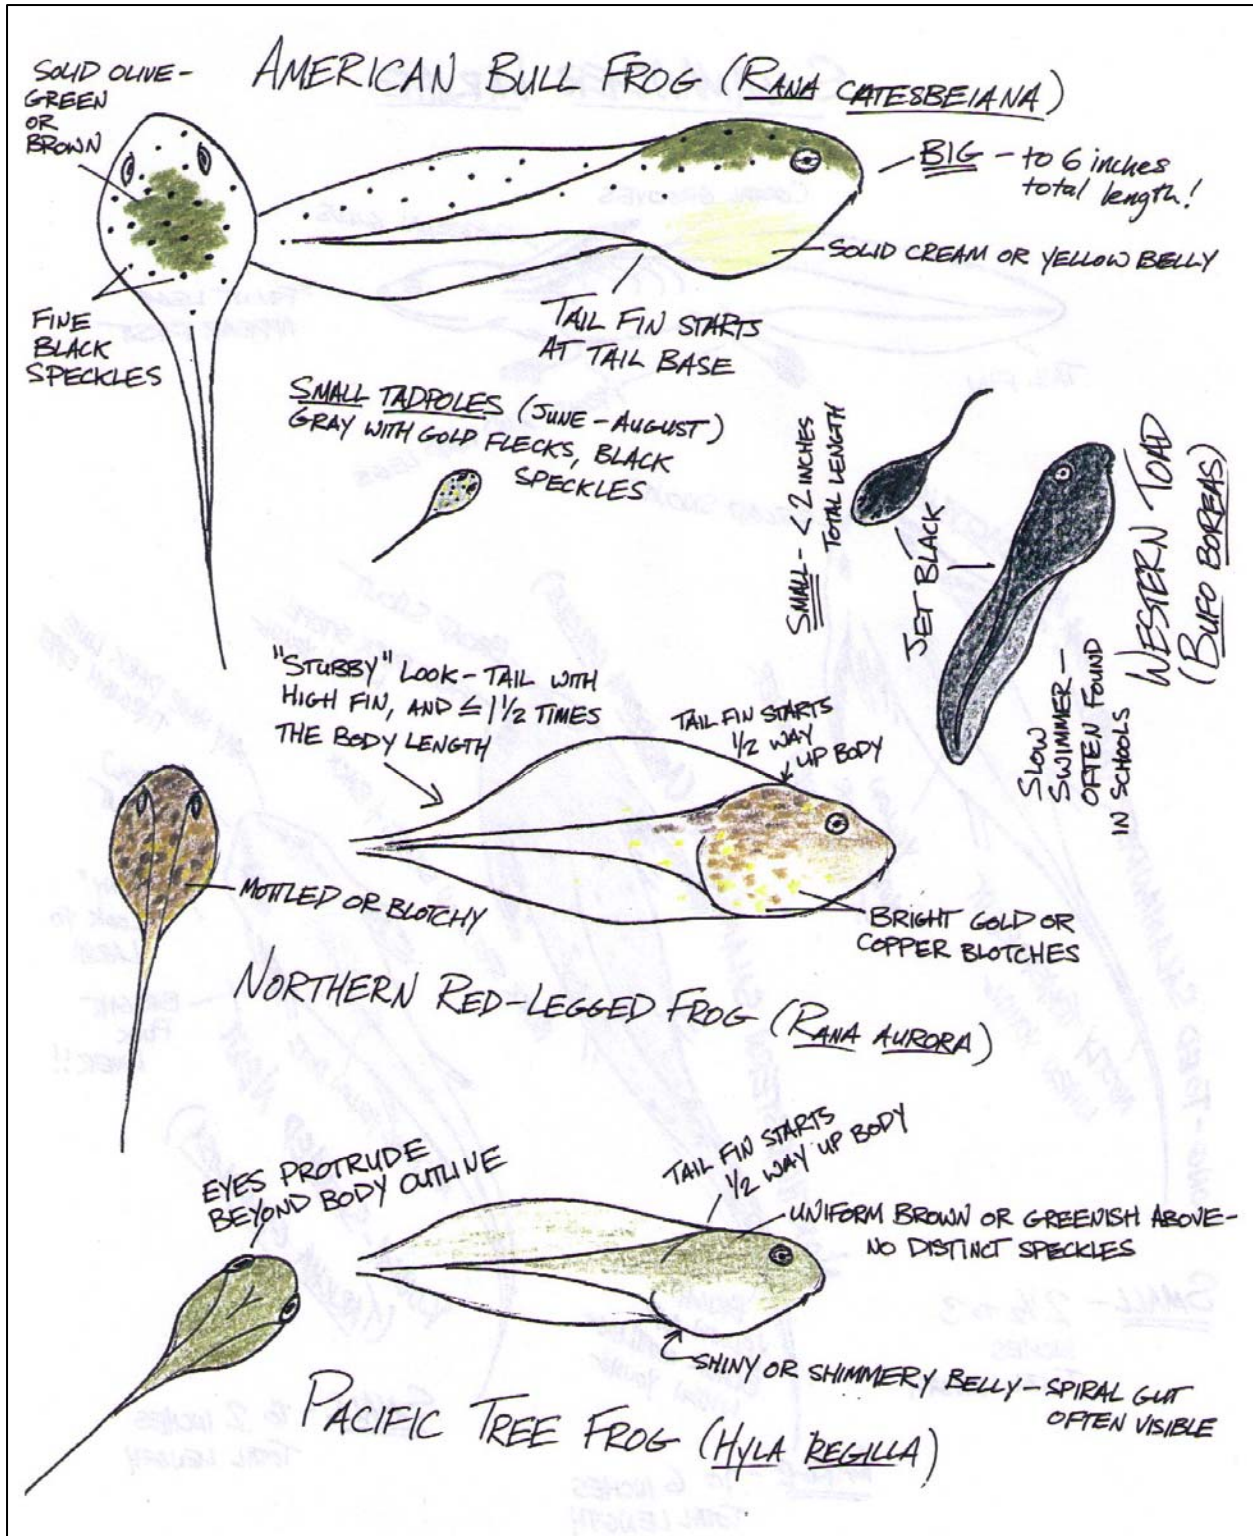 AMERICAN BULL FROG (RANA CATESBEIANA)
SOLID OLIVE-
GREEN
OR
BROWN
BIG - to 6 inches
total length!
SOLID CREAM OR YELLOW BELLY
FINE
BLACK
SPECKLES
TAIL FIN STARTS
AT TAIL BASE
SMALL TADPOLES (JUNE - AUGUST)
GRAY WITH GOLD FLECKS, BLACK
SPECKLES
SMALL - < 2 INCHES
TOTAL LENGTH
JET BLACK
SLOW
SWIMMER -
OFTEN FOUND
IN SCHOOLS
WESTERN TOAD
(BUFO BOREAS)
"STUBBY" LOOK - TAIL WITH
HIGH FIN, AND ≤ 1 1/2 TIMES
THE BODY LENGTH
TAIL FIN STARTS
1/2 WAY
UP BODY
MOTTLED OR BLOTCHY
BRIGHT GOLD OR
COPPER BLOTCHES
NORTHERN RED-LEGGED FROG (RANA AURORA)
EYES PROTRUDE
BEYOND BODY OUTLINE
TAIL FIN STARTS
1/2 WAY UP BODY
UNIFORM BROWN OR GREENISH ABOVE-
NO DISTINCT SPECKLES
SHINY OR SHIMMERY BELLY - SPIRAL GUT
OFTEN VISIBLE
PACIFIC TREE FROG (HYLA REGILLA)